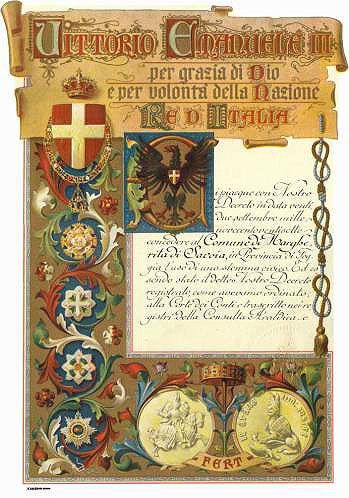 VITTORIO EMANUELE III
per grazia di Dio
e per volontà della Nazione
RE D'ITALIA
Ci piacque con Nostro
Decreto in data venti
due settembre mille
novecentoventisette
concedere al Comune di Marghe
rita di Savoia, in Provincia di Fog
gia l'uso di uno stemma civico. Ed es
sendo stato il detto Nostro Decreto
registrato, come avevamo ordinato,
alla Corte dei Conti e trascritto nei re
gistri della Consulta Araldica, e
FERT